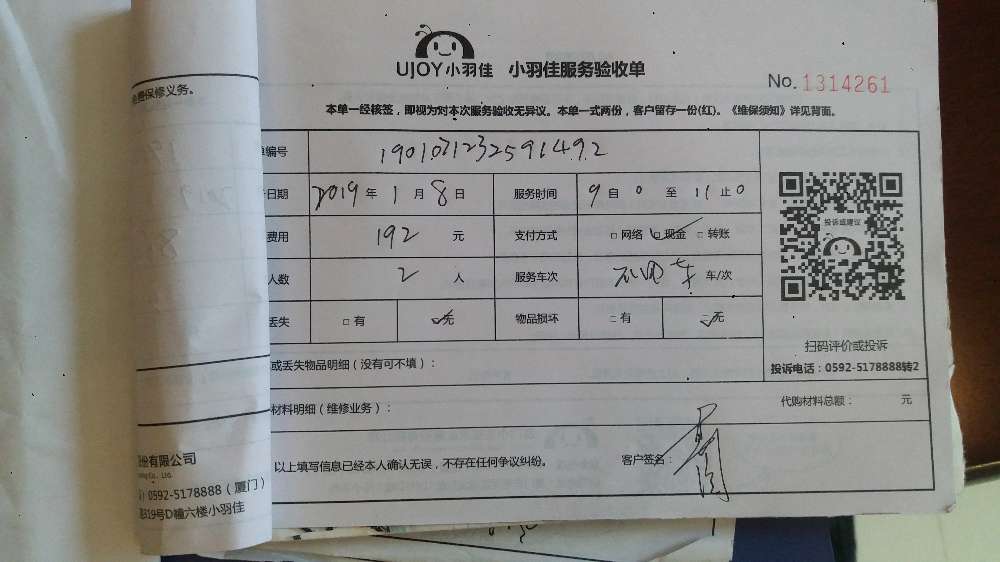 UJOY小羽佳 小羽佳服务验收单
No. 1314261
本单一经核签，即视为对本次服务验收无异议。本单一式两份，客户留存一份(红)。《维保须知》详见背面。
免费保修义务。
编号 190103123259649.2
日期 2019年1月8日 服务时间 9自0至11止0
费用 192元 支付方式 □网络 □现金 □转账
人数 2人 服务车次 车/次
丢失 □有 □无 物品损坏 □有 □无
投诉或建议
扫码评价或投诉
投诉电话：0592-5178888转2
或丢失物品明细（没有可不填）：
材料明细（维修业务）： 代购材料总额： 元
以上填写信息已经本人确认无误，不存在任何争议纠纷。 客户签名：
份有限公司
Co., Ltd.
0592-5178888（厦门）
319号D幢六楼小羽佳